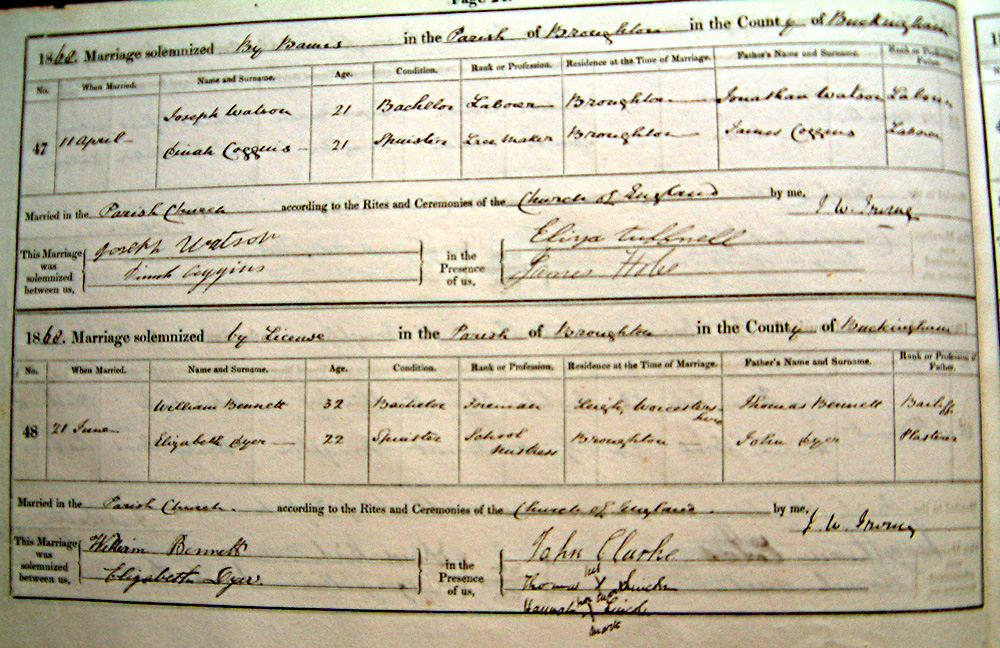 Page 24.
1868. Marriage solemnized By Banns in the Parish of Broughton in the County of Buckingham
No. When Married. Name and Surname. Age. Condition. Rank or Profession. Residence at the Time of Marriage. Father's Name and Surname. Rank or Profession of Father.
47 11 April Joseph Watson 21 Bachelor Labourer Broughton Jonathan Watson Labourer
Dinah Coggins 21 Spinster Lace maker Broughton James Coggins Labourer
Married in the Parish Church according to the Rites and Ceremonies of the Church of England by me,
J. W. Irving
This Marriage was solemnized between us, Joseph Watson in the Presence of us, Eliza Tuffnell
Dinah Coggins James
1868. Marriage solemnized by License in the Parish of Broughton in the County of Buckingham
No. When Married. Name and Surname. Age. Condition. Rank or Profession. Residence at the Time of Marriage. Father's Name and Surname. Rank or Profession of Father.
48 21 June William Bennett 32 Bachelor Foreman Leigh, Worcestershire Thomas Bennett Bailiff
Elizabeth Dyer 22 Spinster School mistress Broughton John Dyer Plasterer
Married in the Parish Church. according to the Rites and Ceremonies of the Church of England. by me,
J. W. Irving
This Marriage was solemnized between us, William Bennett in the Presence of us, John Clarke
Elizabeth Dyer Thomas X his mark
Hannah X her mark